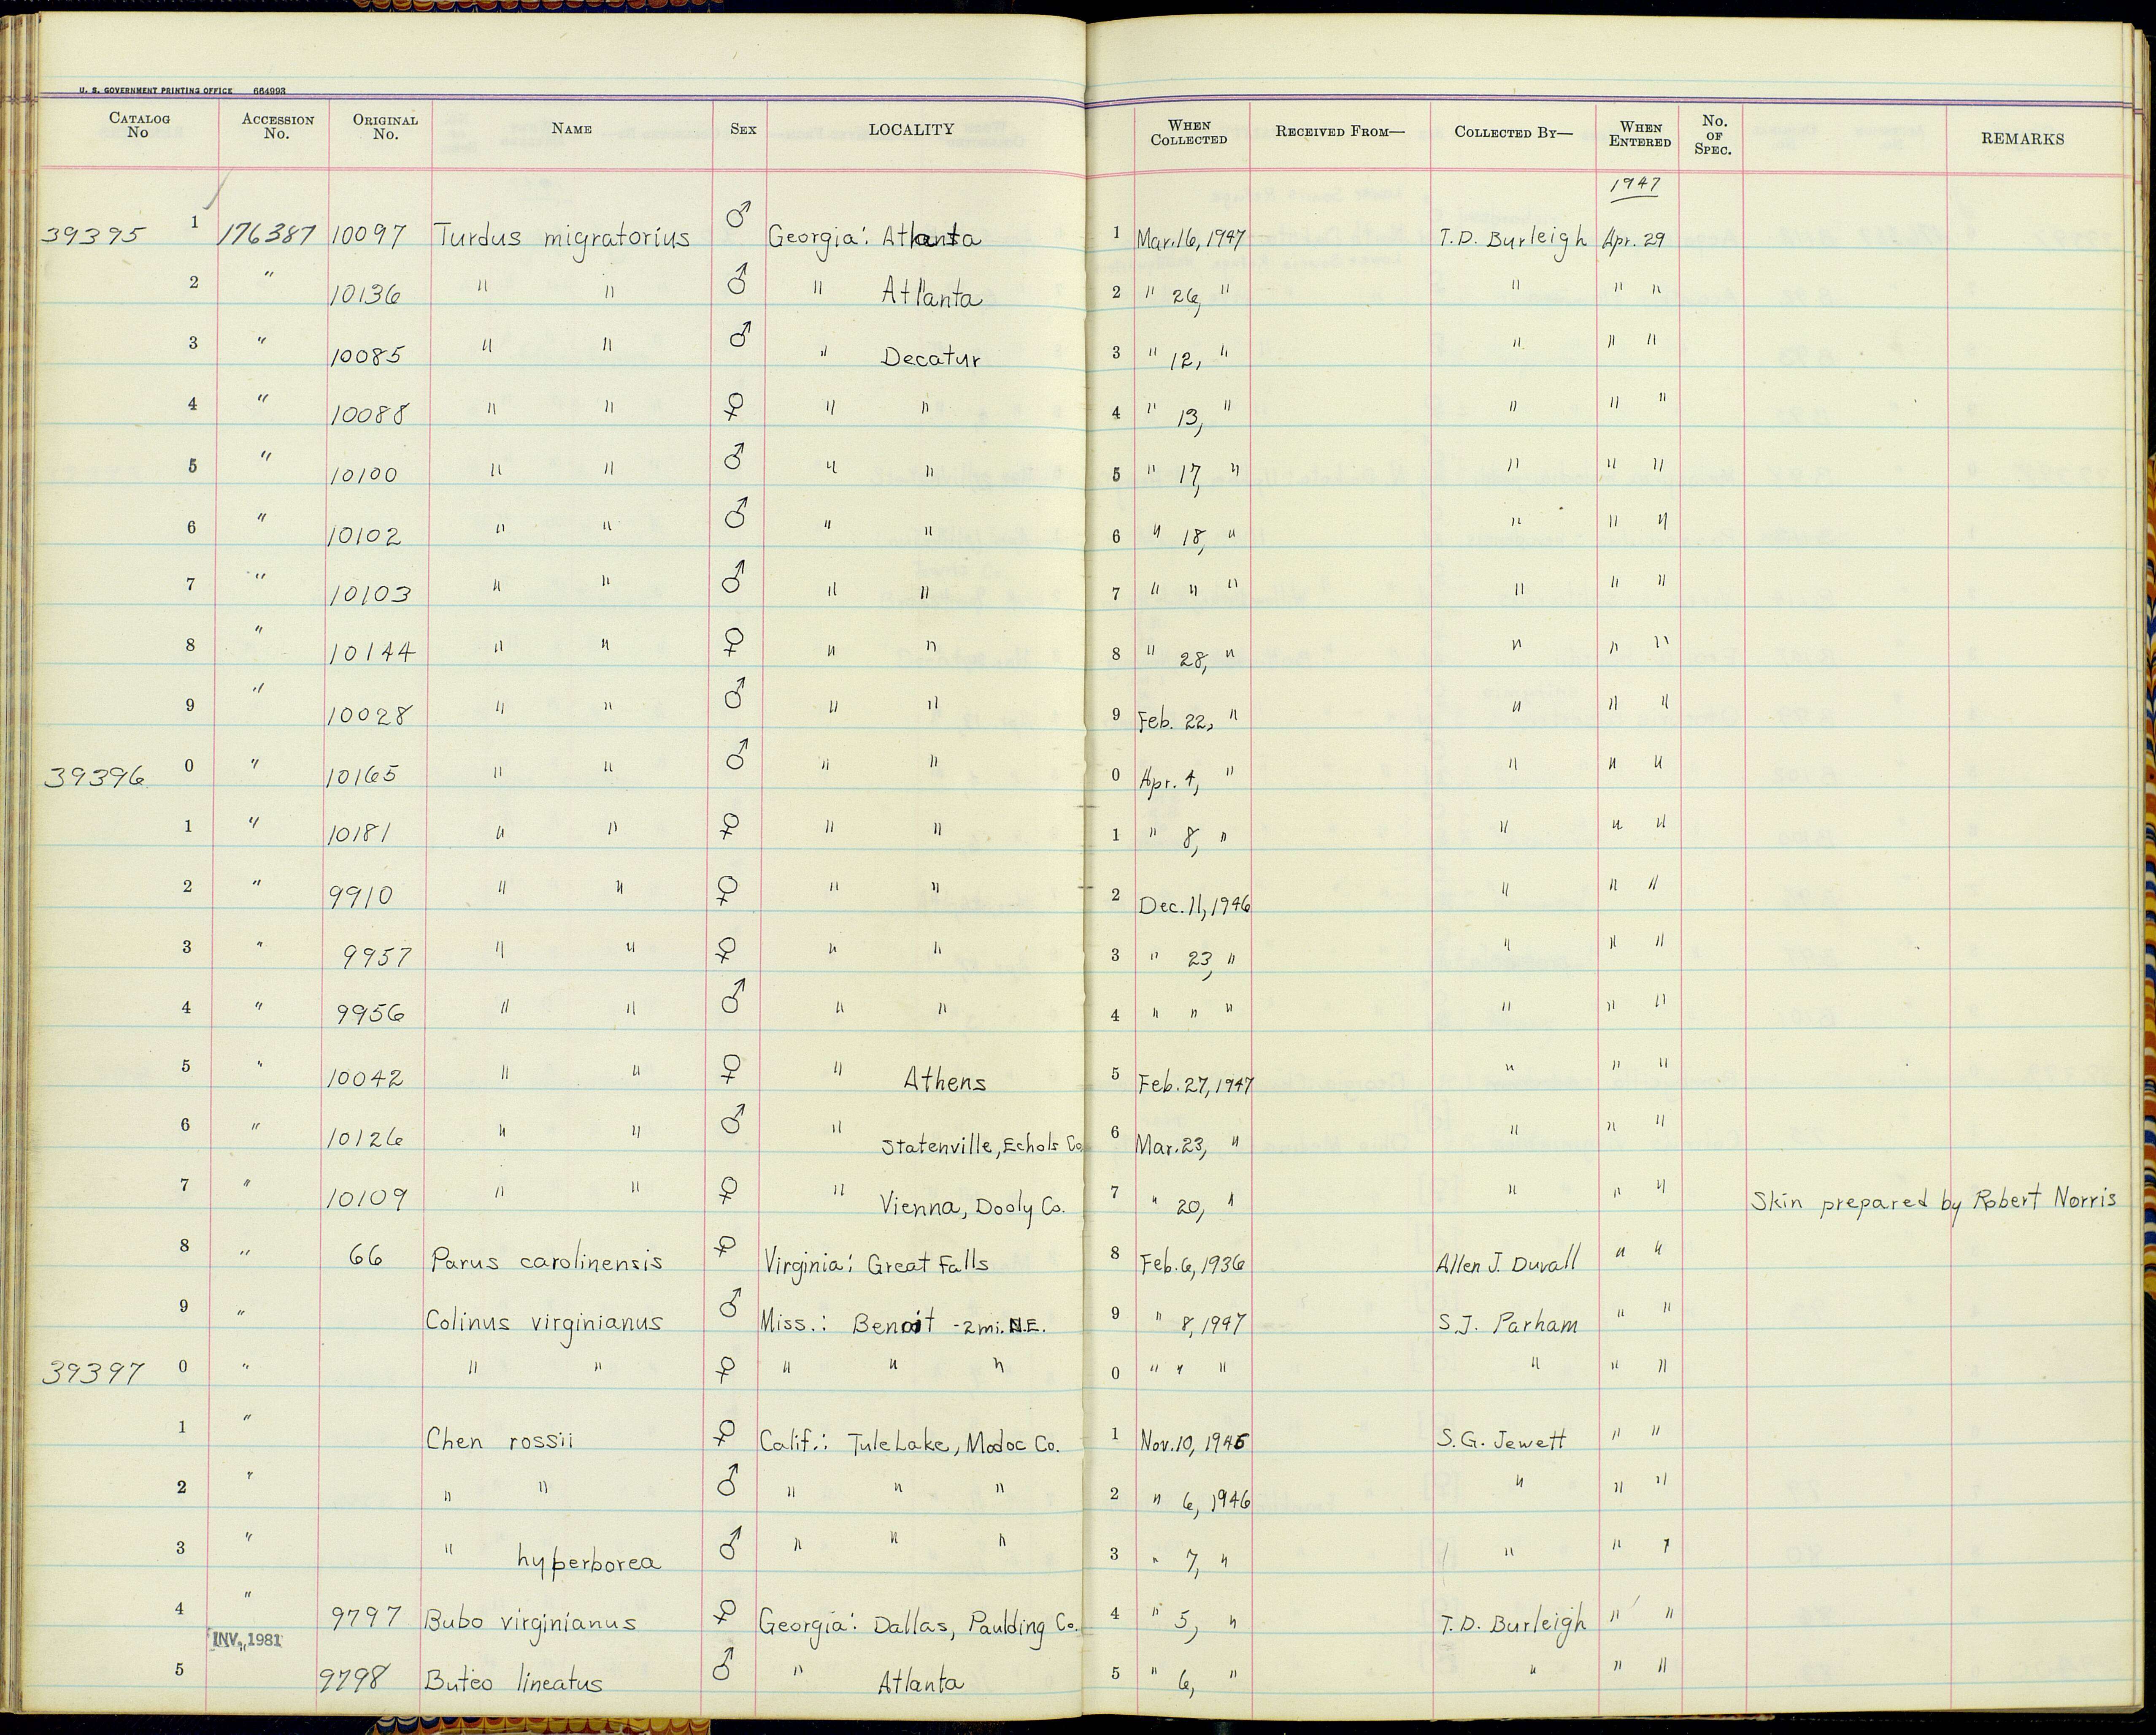 U. S. GOVERNMENT PRINTING OFFICE 664993
CATALOG No ACCESSION No. ORIGINAL No. NAME SEX LOCALITY WHEN COLLECTED RECEIVED FROM— COLLECTED BY— WHEN ENTERED No. OF SPEC. REMARKS
1947
39395 1 176387 10097 Turdus migratorius ♂ Georgia: Atlanta 1 Mar. 16, 1947 T. D. Burleigh Apr. 29
2 " 10136 " " ♂ " Atlanta 2 " 26, " " " "
3 " 10085 " " ♂ " Decatur 3 " 12, " " " "
4 " 10088 " " ♀ " " 4 " 13, " " " "
5 " 10100 " " ♂ " " 5 " 17, " " " "
6 " 10102 " " ♂ " " 6 " 18, " " " "
7 " 10103 " " ♂ " " 7 " " " " " "
8 " 10144 " " ♀ " " 8 " 28, " " " "
9 " 10028 " " ♂ " " 9 Feb. 22, " " " "
39396 0 " 10165 " " ♂ " " 0 Apr. 4, " " " "
1 " 10181 " " ♀ " " 1 " 8, " " " "
2 " 9910 " " ♀ " " 2 Dec. 11, 1946 " " "
3 " 9957 " " ♀ " " 3 " 23, " " " "
4 " 9956 " " ♂ " " 4 " " " " " "
5 " 10042 " " ♀ " Athens 5 Feb. 27, 1947 " " "
6 " 10126 " " ♂ " Statenville, Echols Co 6 Mar. 23, " " " "
7 " 10109 " " ♀ " Vienna, Dooly Co. 7 " 20, " " " " Skin prepared by Robert Norris
8 " 66 Parus carolinensis ♀ Virginia: Great Falls 8 Feb. 6, 1936 Allen J. Duvall " "
9 " Colinus virginianus ♂ Miss.: Benoit - 2 mi. N.E. 9 " 8, 1947 S. J. Parham " "
39397 0 " " " ♀ " " " 0 " " " " " "
1 " Chen rossii ♀ Calif.: Tule Lake, Modoc Co. 1 Nov. 10, 1945 S. G. Jewett " "
2 " " " ♂ " " " 2 " 6, 1946 " " "
3 " " hyperborea ♂ " " " 3 " 7, " " " "
4 " 9797 Bubo virginianus ♀ Georgia: Dallas, Paulding Co. 4 " 5, " T. D. Burleigh " "
INV., 1981
5 9798 Buteo lineatus ♂ " Atlanta 5 " 6, " " " "